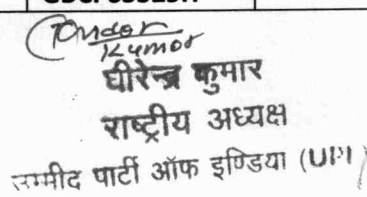 Kumar
धीरेन्द्र कुमार
राष्ट्रीय अध्यक्ष
उम्मीद पार्टी ऑफ इण्डिया (UPI)